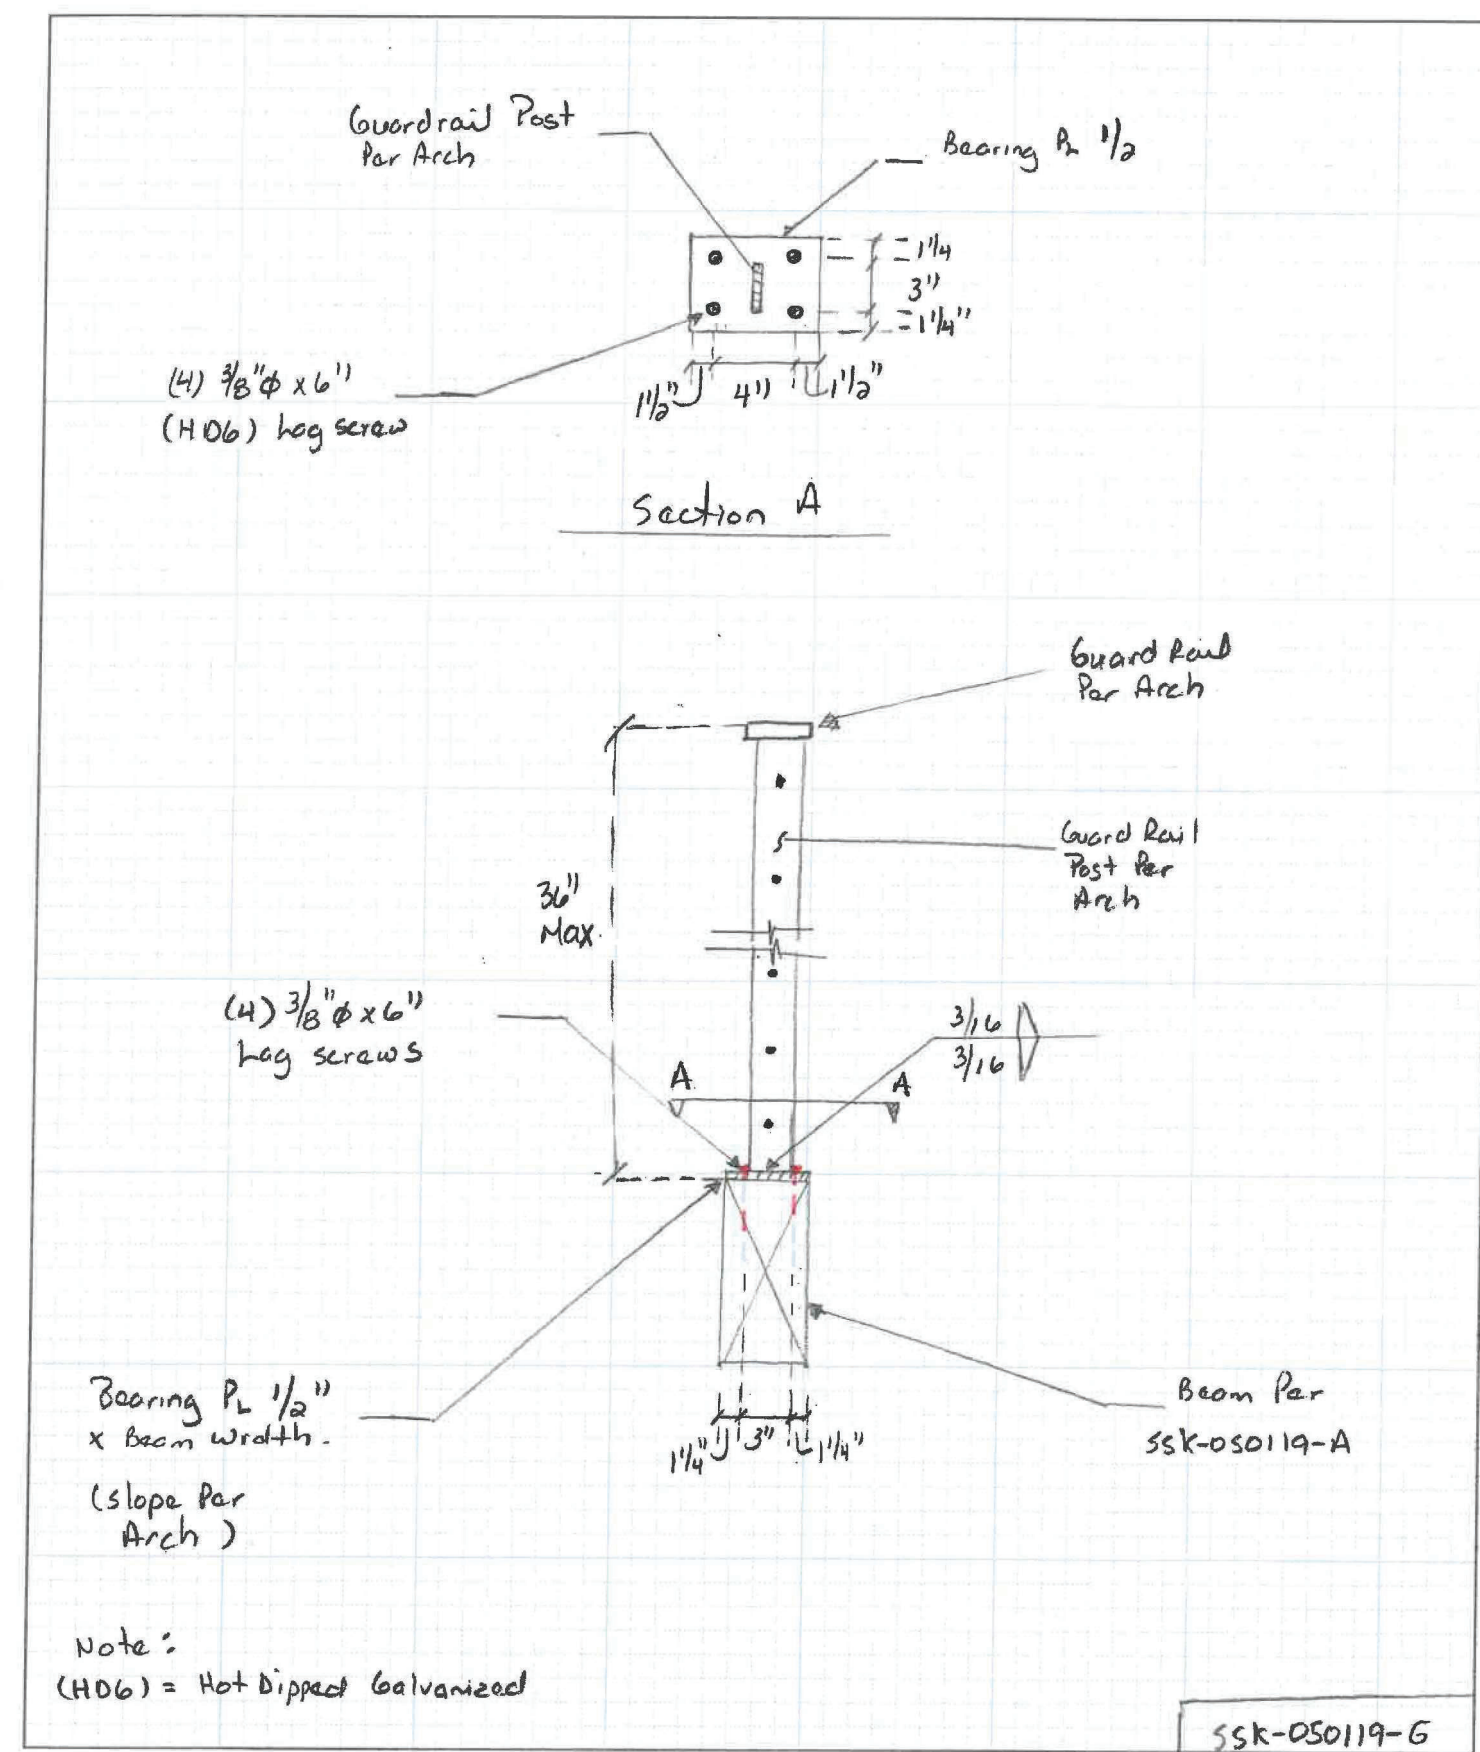 Guardrail Post
Per Arch
Bearing PL 1/2
1 1/4
3"
1 1/4"
(4) 3/8"ø x 6"
(HDG) Lag screw
1 1/2"
4"
1 1/2"
Section A
Guard Rail
Per Arch
Guard Rail
Post Per
Arch
36"
Max.
(4) 3/8"ø x 6"
Lag screws
3/16
3/16
A
A
Bearing PL 1/2"
x Beam Width.
(slope Per
Arch)
1 1/4"
3"
1 1/4"
Beam Per
SSK-050119-A
Note:
(HDG) = Hot Dipped Galvanized
SSK-050119-G